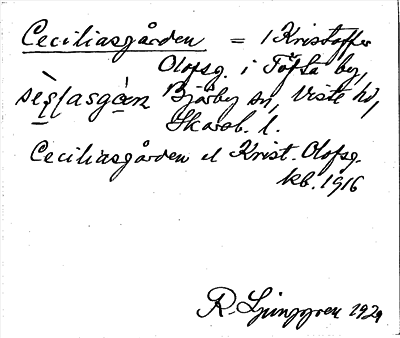 Ceciliasgården = / Kristoffer
Olofsg. i Töfta by,
Bjärby sn, Viste hd,
Skarab. l.
Ceciliasgården el Krist. Olofsg.
kb. 1916
R. Ljunggren 1929